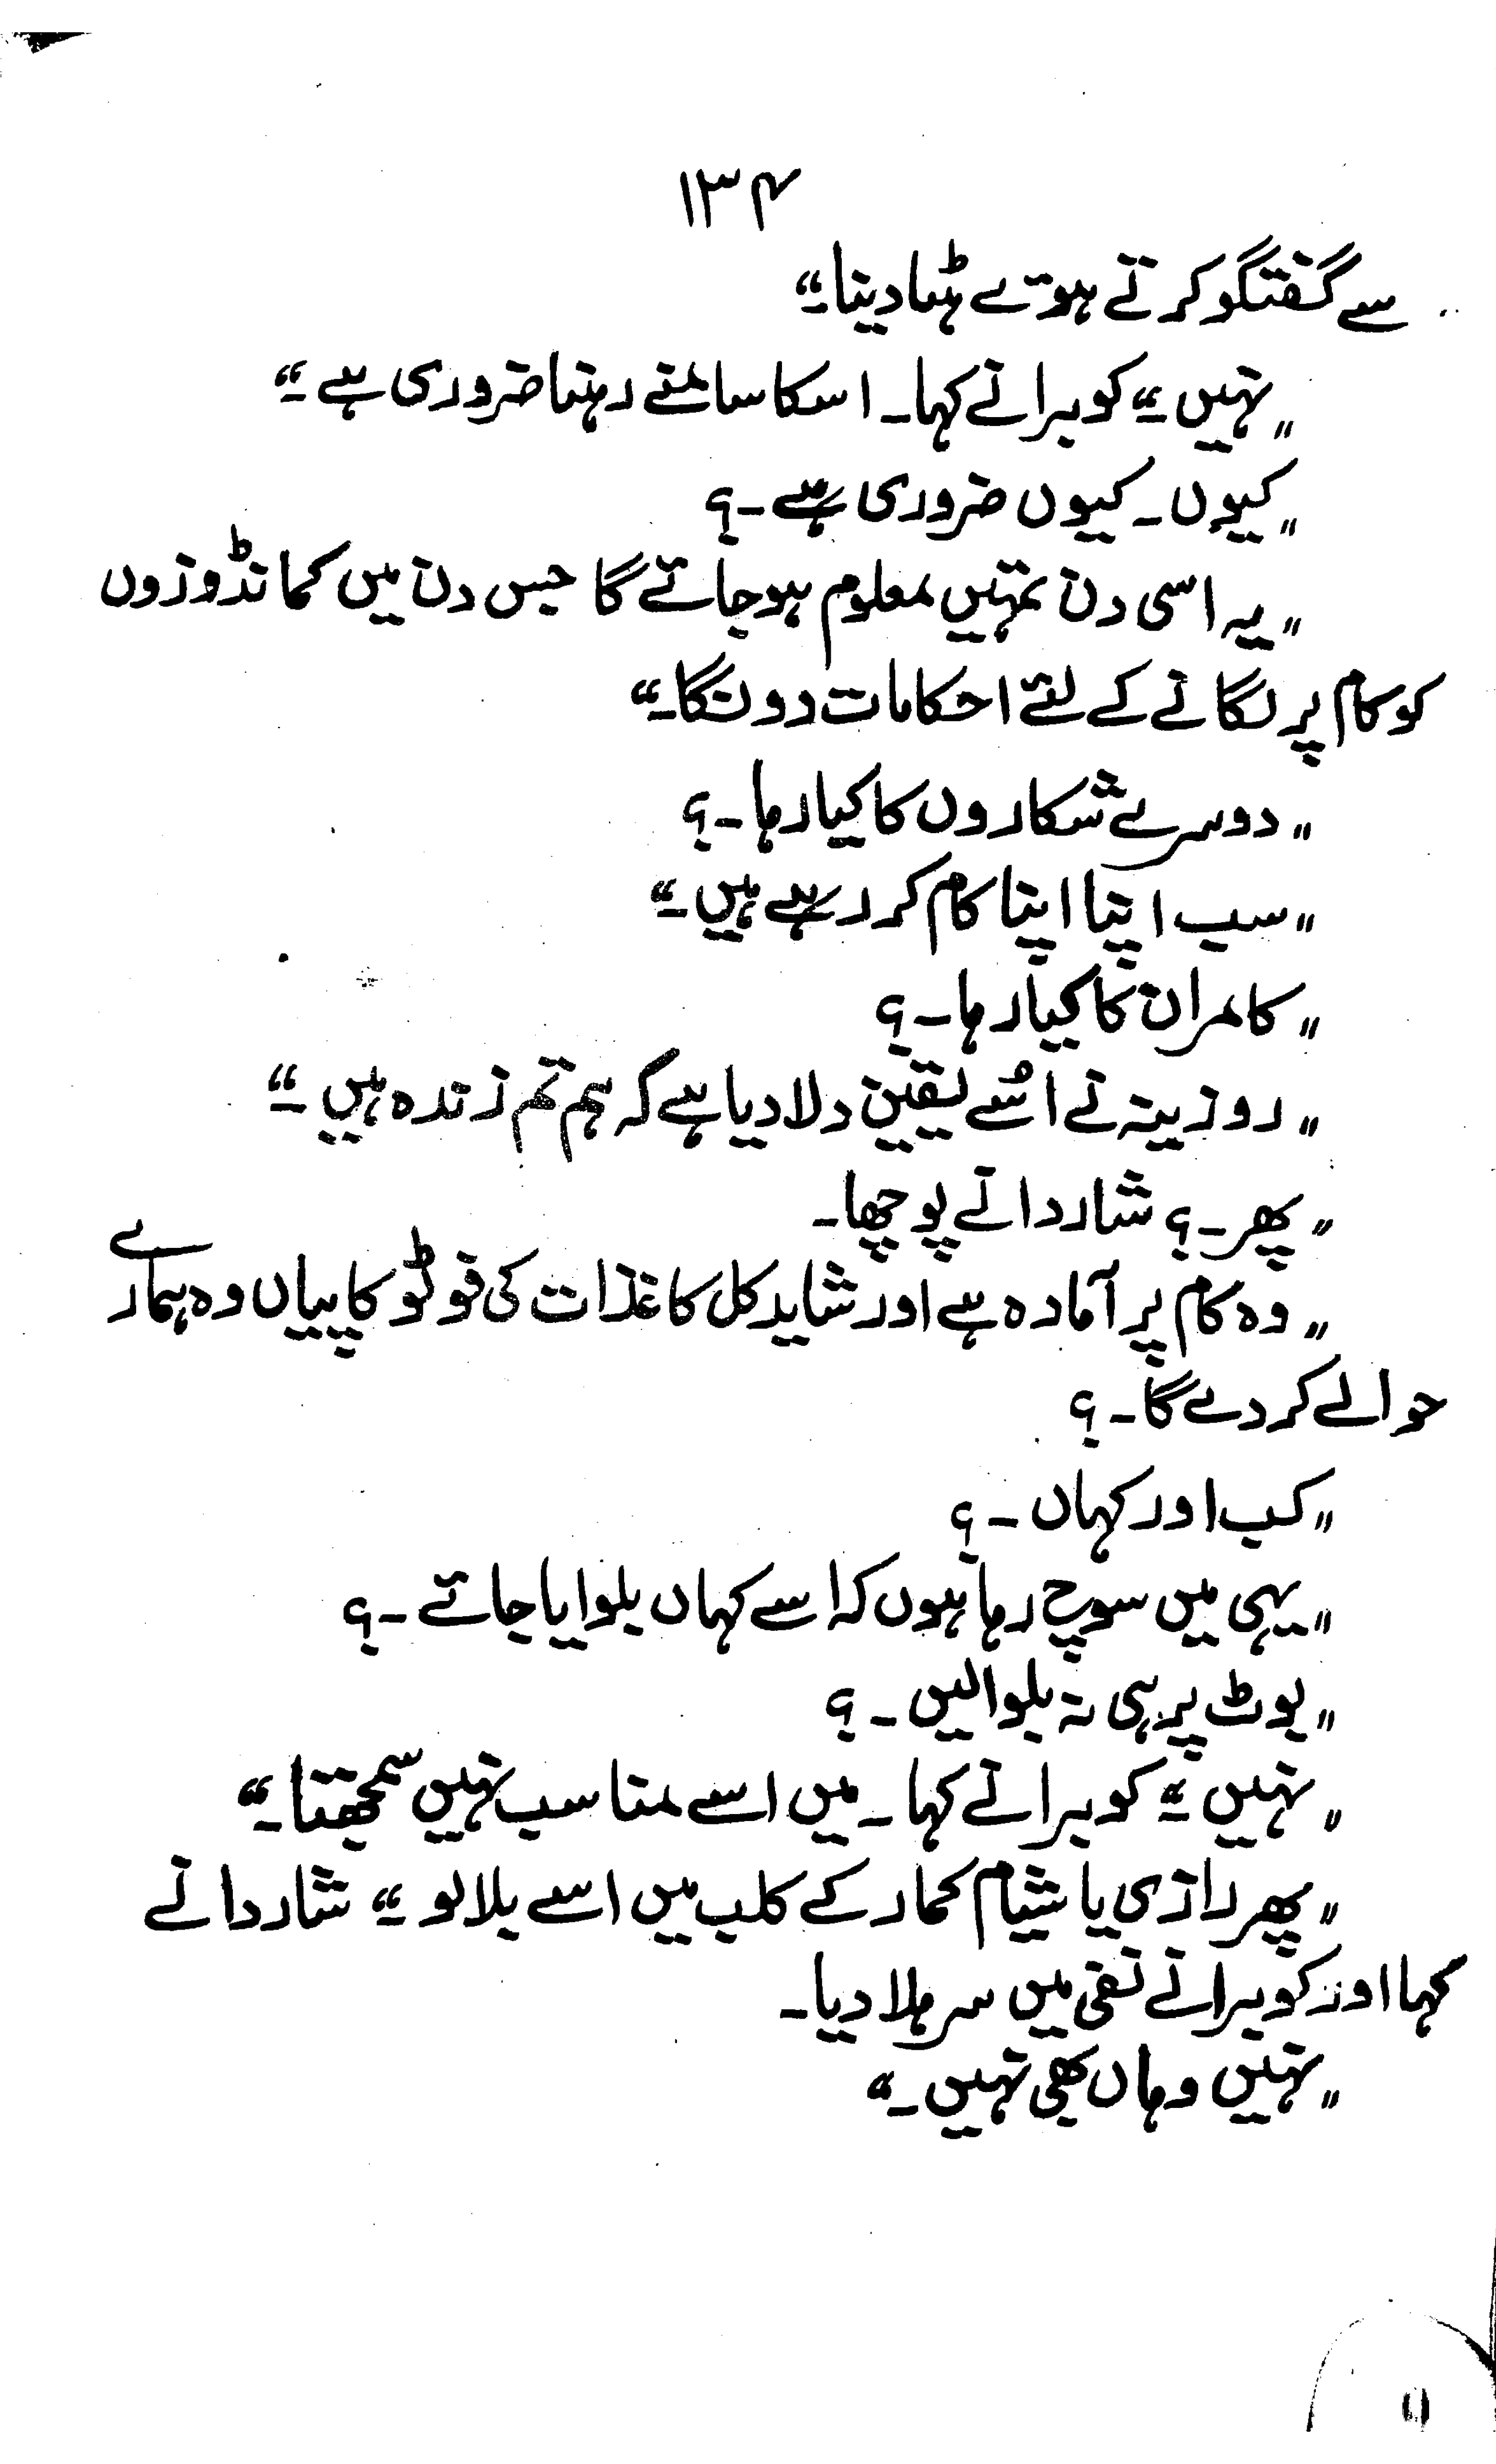 ۱۳۴
سے گفتگو کرتے ہوئے ہٹا دینا۔“
”نہیں۔“ کوبرا نے کہا۔ اسکا سامنے رہنا ضروری ہے۔“
”کیوں۔ کیوں ضروری ہے۔؟
”یہ اسی دن تمہیں معلوم ہو جائے گا جس دن میں کمانڈوزوں
کو کام پر لگانے کے لئے احکامات دونگا۔“
”دوسرے شکاروں کا کیا رہا۔؟
”سب اپنا اپنا کام کر رہے ہیں۔“
”کامران کا کیا رہا۔؟
”روزینہ نے اُسے یقین دلا دیا ہے کہ ہم تم زندہ ہیں۔“
”پھر۔؟ شاردا نے پوچھا۔
”وہ کام پر آمادہ ہے اور شاید کل کاغذات کی فوٹو کاپیاں وہ ہمارے
حوالے کر دے گا۔؟
”کب اور کہاں۔؟
”یہی میں سوچ رہا ہوں کہ اسے کہاں بلوایا جائے۔؟
”بوٹ پر ہی نہ بلوالیں۔؟
”نہیں۔“ کوبرا نے کہا۔ میں اسے مناسب نہیں سمجھتا۔“
”پھر رازی یا شیام کمار کے کلب میں اسے بلا لو۔“ شاردا نے
کہا اور کوبرا نے نفی میں سر ہلا دیا۔
”نہیں وہاں بھی نہیں۔“